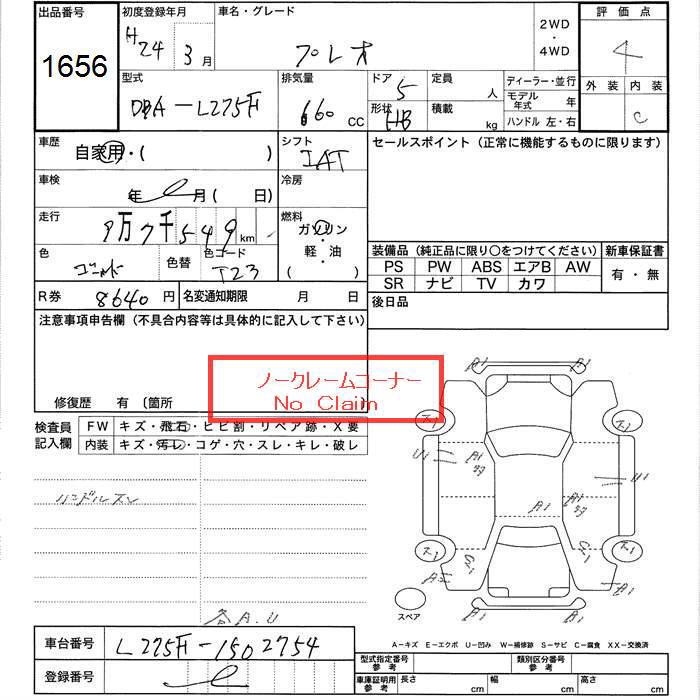 出品番号 初度登録年月 車名・グレード 2WD ・ 4WD 評価点
1656 H24 3月 プレオ 4
型式 排気量 ドア 定員 ディーラー・並行 外装 内装
DBA-L275F 660 CC 5 人 モデル年式 年 C
形状 HB 積載 kg ハンドル 左・右
車歴 自家用・( ) シフト IAT セールスポイント (正常に機能するものに限ります)
車検 年 月( 日) 冷房
走行 万7千549km 燃料 ガソリン
軽・油
( )
色 ゴールド 色替 色コード T23
装備品 (純正品に限り○をつけてください) 新車保証書
PS PW ABS エアB AW 有・無
SR ナビ TV カワ
R券 8640円 名変通知期限 月 日 後日品
注意事項申告欄 (不具合内容等は具体的に記入して下さい)
ノークレームコーナー
No Claim
修復歴 有 〔箇所
検査員記入欄 FW キズ・飛石・ヒビ割・リペア跡・X要
内装 キズ・汚レ・コゲ・穴・スレ・キレ・破レ
ハンドルスレ
A1 A1
U1 A1 U1
A1
A1
スペア
各A.U
A1
A-キズ E-エクボ U-凹み W-補修跡 S-サビ C-腐食 XX-交換済
車台番号 L275F-1502754
登録番号
型式指定番号 参考 類別区分番号 参考
車庫証明用 参考 長さ cm 幅 cm 高さ cm